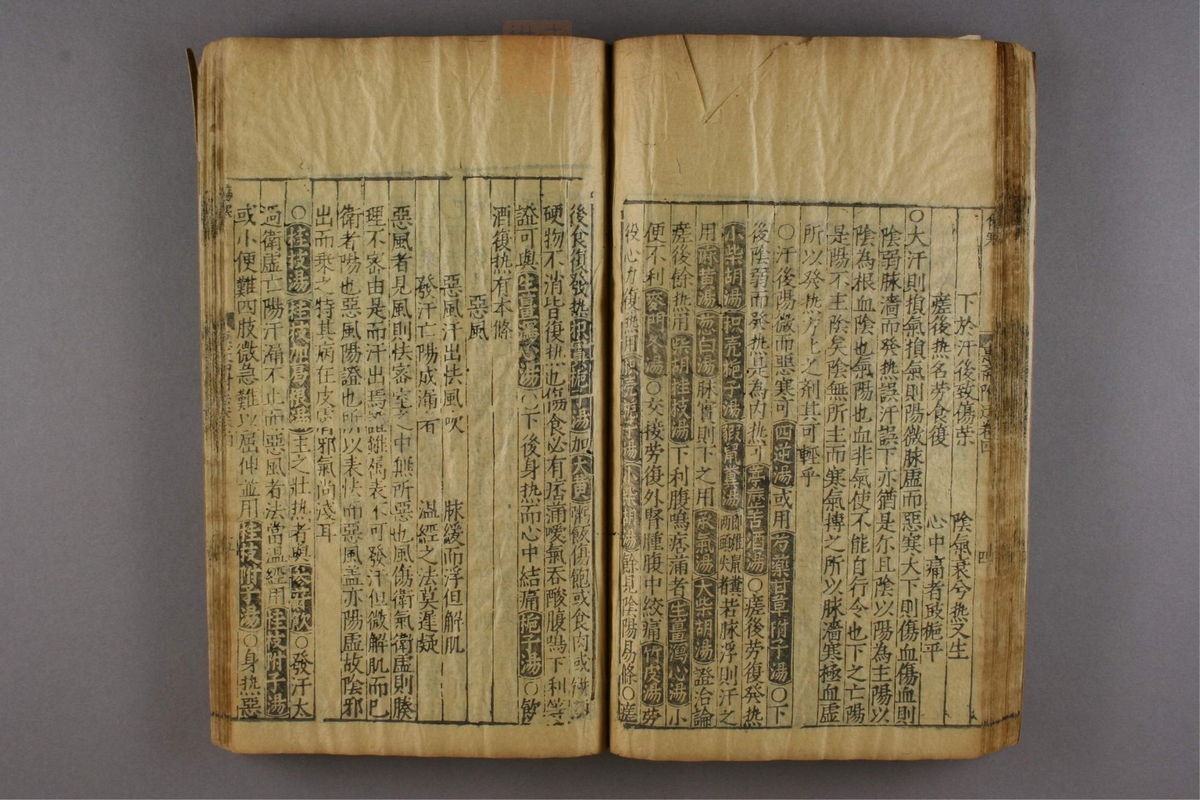 下於汗後致傷榮 陰氣衰兮熱又生
瘥後熱名勞食復 心中痛者豉梔平
○大汗則損氣損氣則陽微脉虛而惡寒大下則傷血傷血則
陰弱脉濇而發熱誤汗誤下亦猶是尓且陰以陽為主陽以
陰為根血陰也氣陽也血非氣使不能自行令也下之亡陽
是陽不主陰矣陰無所主而寒氣摶之所以脉濇寒極血虛
所以發熱方上之剤其可輕乎
○汗後陽微而惡寒可四逆湯或用芍藥甘草附子湯○下
後陰弱而發熱是為内熱可葶藶苦酒湯○瘥後勞復發熱
小柴胡湯枳壳梔子湯猳鼠糞湯若脉浮則汗之
用麻黄湯葱白湯脉實則下之用承氣湯大柴胡湯證治論
瘥後餘熱用柴胡桂枝湯下利腹鳴痞滿者生薑瀉心湯小
便不利麥門冬湯○交接勞復外腎腫腹中絞痛竹皮湯勞
役心力復熱用枳壳梔子湯小柴胡湯餘見陰陽易條○瘥
後食復發熱枳實梔子湯加大黄粥飯傷飽或食肉或
硬物不消皆復熱也傷食必有痞滿噯氣吞酸腹鳴下利等
證可與生薑瀉心湯○下後身熱而心中結痛梔子湯○飲
酒復熱有本條
惡風
惡風汗出怯風吹 脉緩而浮但解肌
發汗亡陽成漏者 温經之法莫遲疑
惡風者見風則怯密室之中無所惡也風傷衛氣衛虛則腠
理不密由是而汗出焉證雖屬表不可發汗但微解肌而已
衛者陽也惡風陽證也所以表怯而惡風盖亦陽虛故陰邪
出而乘之特其病在皮膚邪氣尚淺耳
○桂枝湯桂枝加葛根湯主之壮熱者與參蘇飲○發汗太
過衛虛亡陽汗漏不止而惡風者法當温經用桂枝附子湯
或小便難四肢微急難以屈伸並用桂枝附子湯○身熱惡